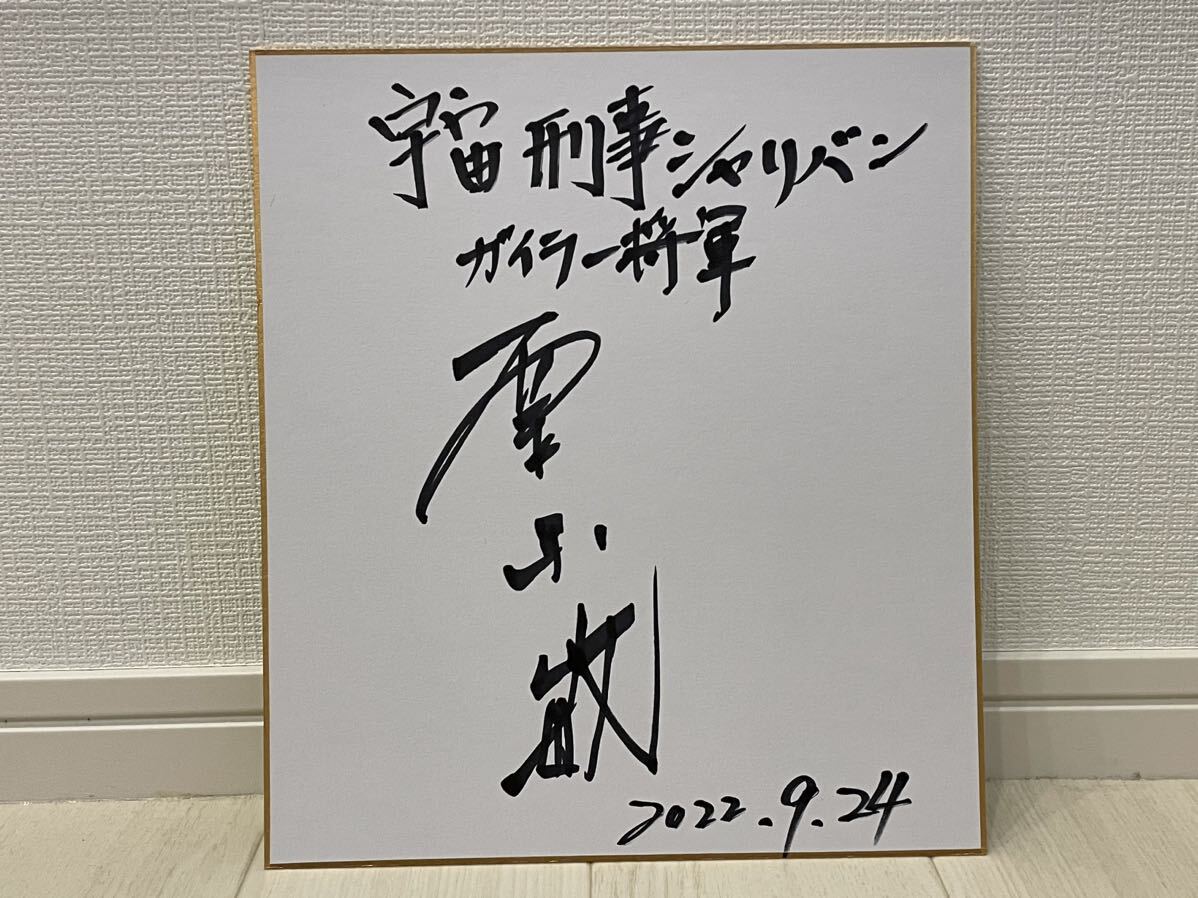 宇宙刑事シャリバン
ガイラー将軍
栗原敏
2022.9.24